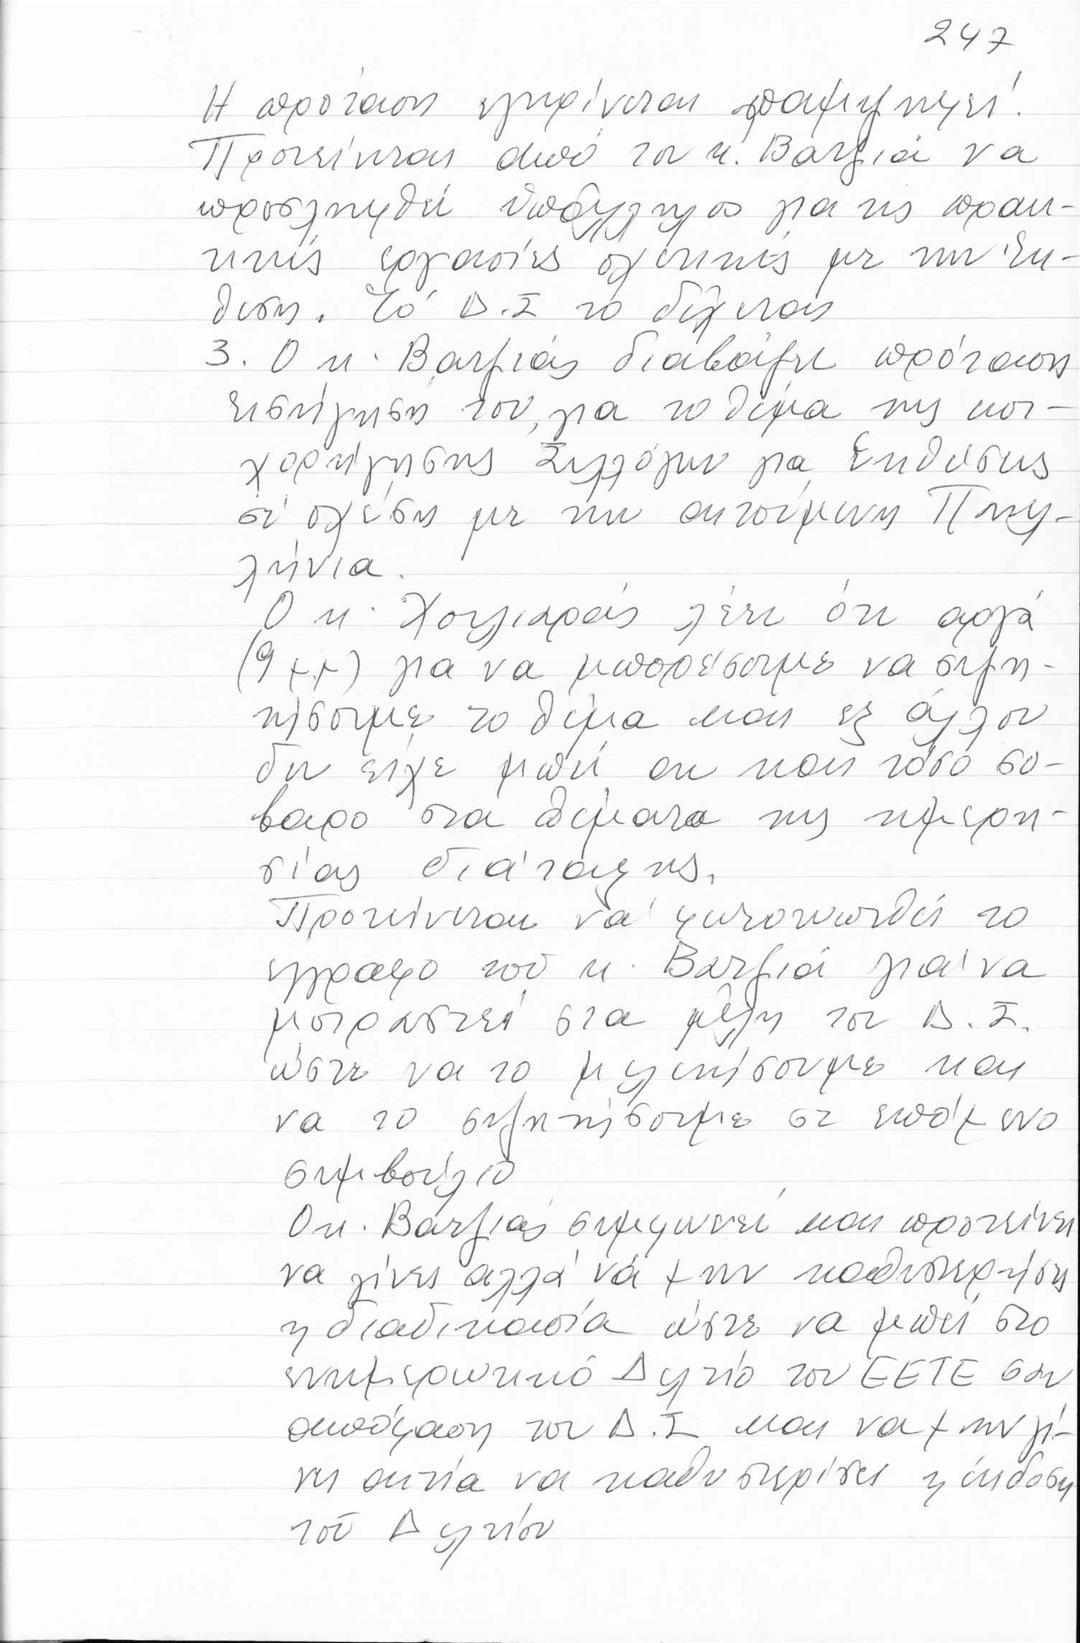 247
Η πρόταση εγκρίνεται παμψηφεί.
Προτείνεται από τον κ. Βατζιά να
προσληφθεί υπάλληλος για τις πρακ-
τικές εργασίες σχετικές με την Έκ-
θεση. Το Δ.Σ το δέχεται
3. Ο κ. Βατζιάς διαβάζει πρόταση
εισήγησή του, για το θέμα της επι-
χορήγησης Συλλόγων για Εκθέσεις
σε σχέση με την αιτούμενη Παλ-
λήνια.
Ο κ. Χουλιαράς λέει ότι αργά
(9 μ.μ) για να μπορέσουμε να συζη-
τήσουμε το θέμα και εξ άλλου
δεν είχε μπεί αν και τόσο σο-
βαρο στα θέματα της ημερη-
σίας διάταξης.
Προτείνεται να φωτοτυπηθεί το
εγγραφο του κ. Βατζιά για να
μοιραστεί στα μέλη του Δ.Σ.
ώστε να το μελετήσουμε και
να το συζητήσουμε σε επόμενο
συμβούλιο
Ο κ. Βατζιάς συμφωνεί και προτείνει
να γίνει αλλά νά μην καθυστερήσει
η διαδικασία ώστε να μπεί στο
ενημερωτικό Δελτίο του ΕΕΤΕ σαν
απόφαση του Δ.Σ και να μην γί-
νει αιτία να καθυστερίσει η έκδοση
τού Δελτίου